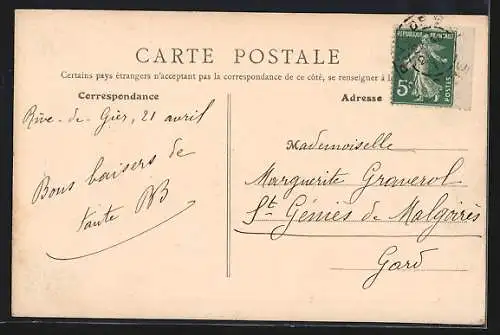 CARTE POSTALE
Certains pays étrangers n'acceptant pas la correspondance de ce côté, se renseigner à
Correspondance
Adresse
REPUBLIQUE FRANÇAISE
5c
POSTES
Rive-de-Gier, 21 avril
Bons baisers de
tante
Mademoiselle
Marguerite Graverol
St Géniès de Malgoirès
Gard